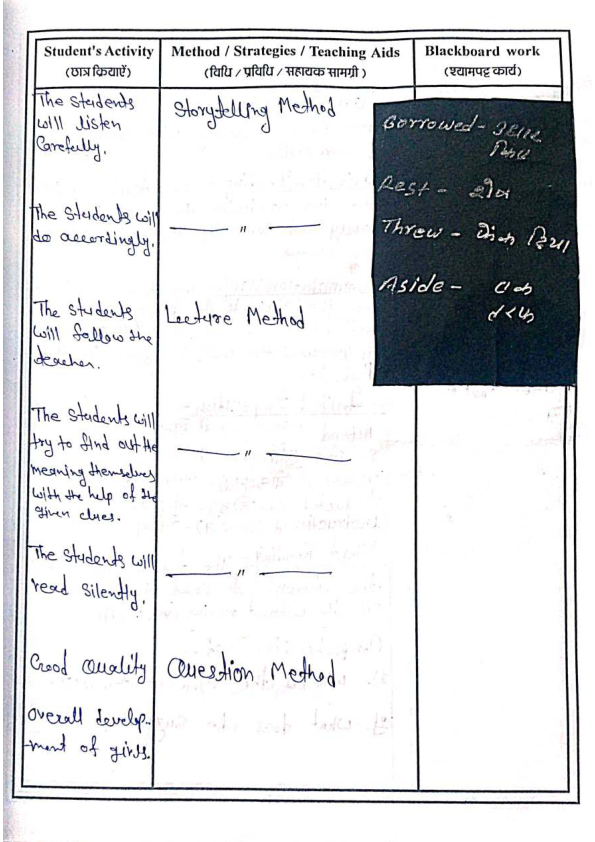 Student's Activity
(छात्र क्रियाएँ)
Method / Strategies / Teaching Aids
(विधि / प्रविधि / सहायक सामग्री)
Blackboard work
(श्यामपट्ट कार्य)
The Students
will listen
Carefully.
Storytelling Method
Borrowed - उधार
लिया
Rest - शेष
Threw - फेंक दिया
Aside - एक
तरफ
The Students will
do accordingly.
— " —
The Students
will follow the
teacher.
Lecture Method
The Students will
try to find out the
meaning themselves
with the help of the
given clues.
— " —
The Students will
read silently.
— " —
Good Quality
Question Method
Overall develop-
-ment of girls.